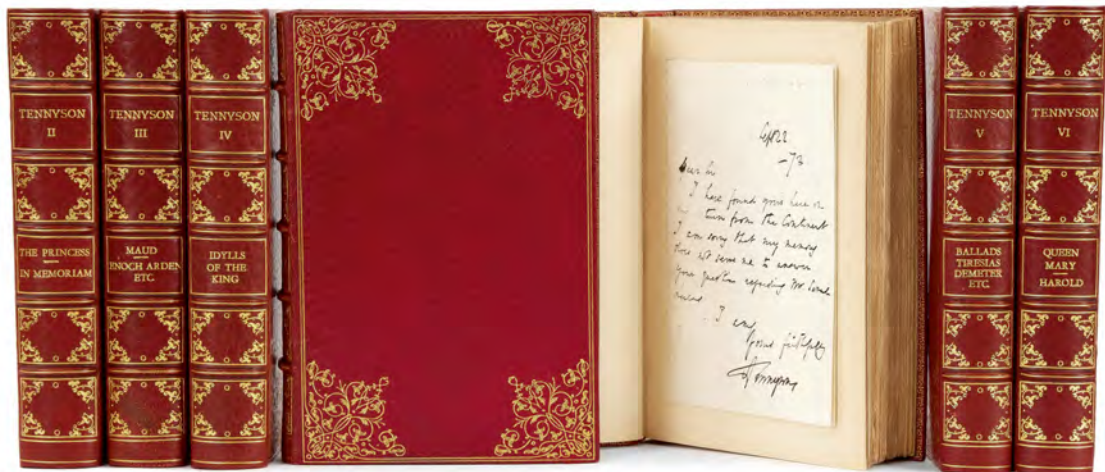 TENNYSON
II
THE PRINCESS
IN MEMORIAM
TENNYSON
III
MAUD
ENOCH ARDEN
ETC.
TENNYSON
IV
IDYLLS
OF THE
KING
Dear Sir
I have found yours here on
my return from the Continent
I am sorry that my memory
does not serve me to answer
your question regarding
I am
yours faithfully
A Tennyson
TENNYSON
V
BALLADS
TIRESIAS
DEMETER
ETC.
TENNYSON
VI
QUEEN
MARY
HAROLD